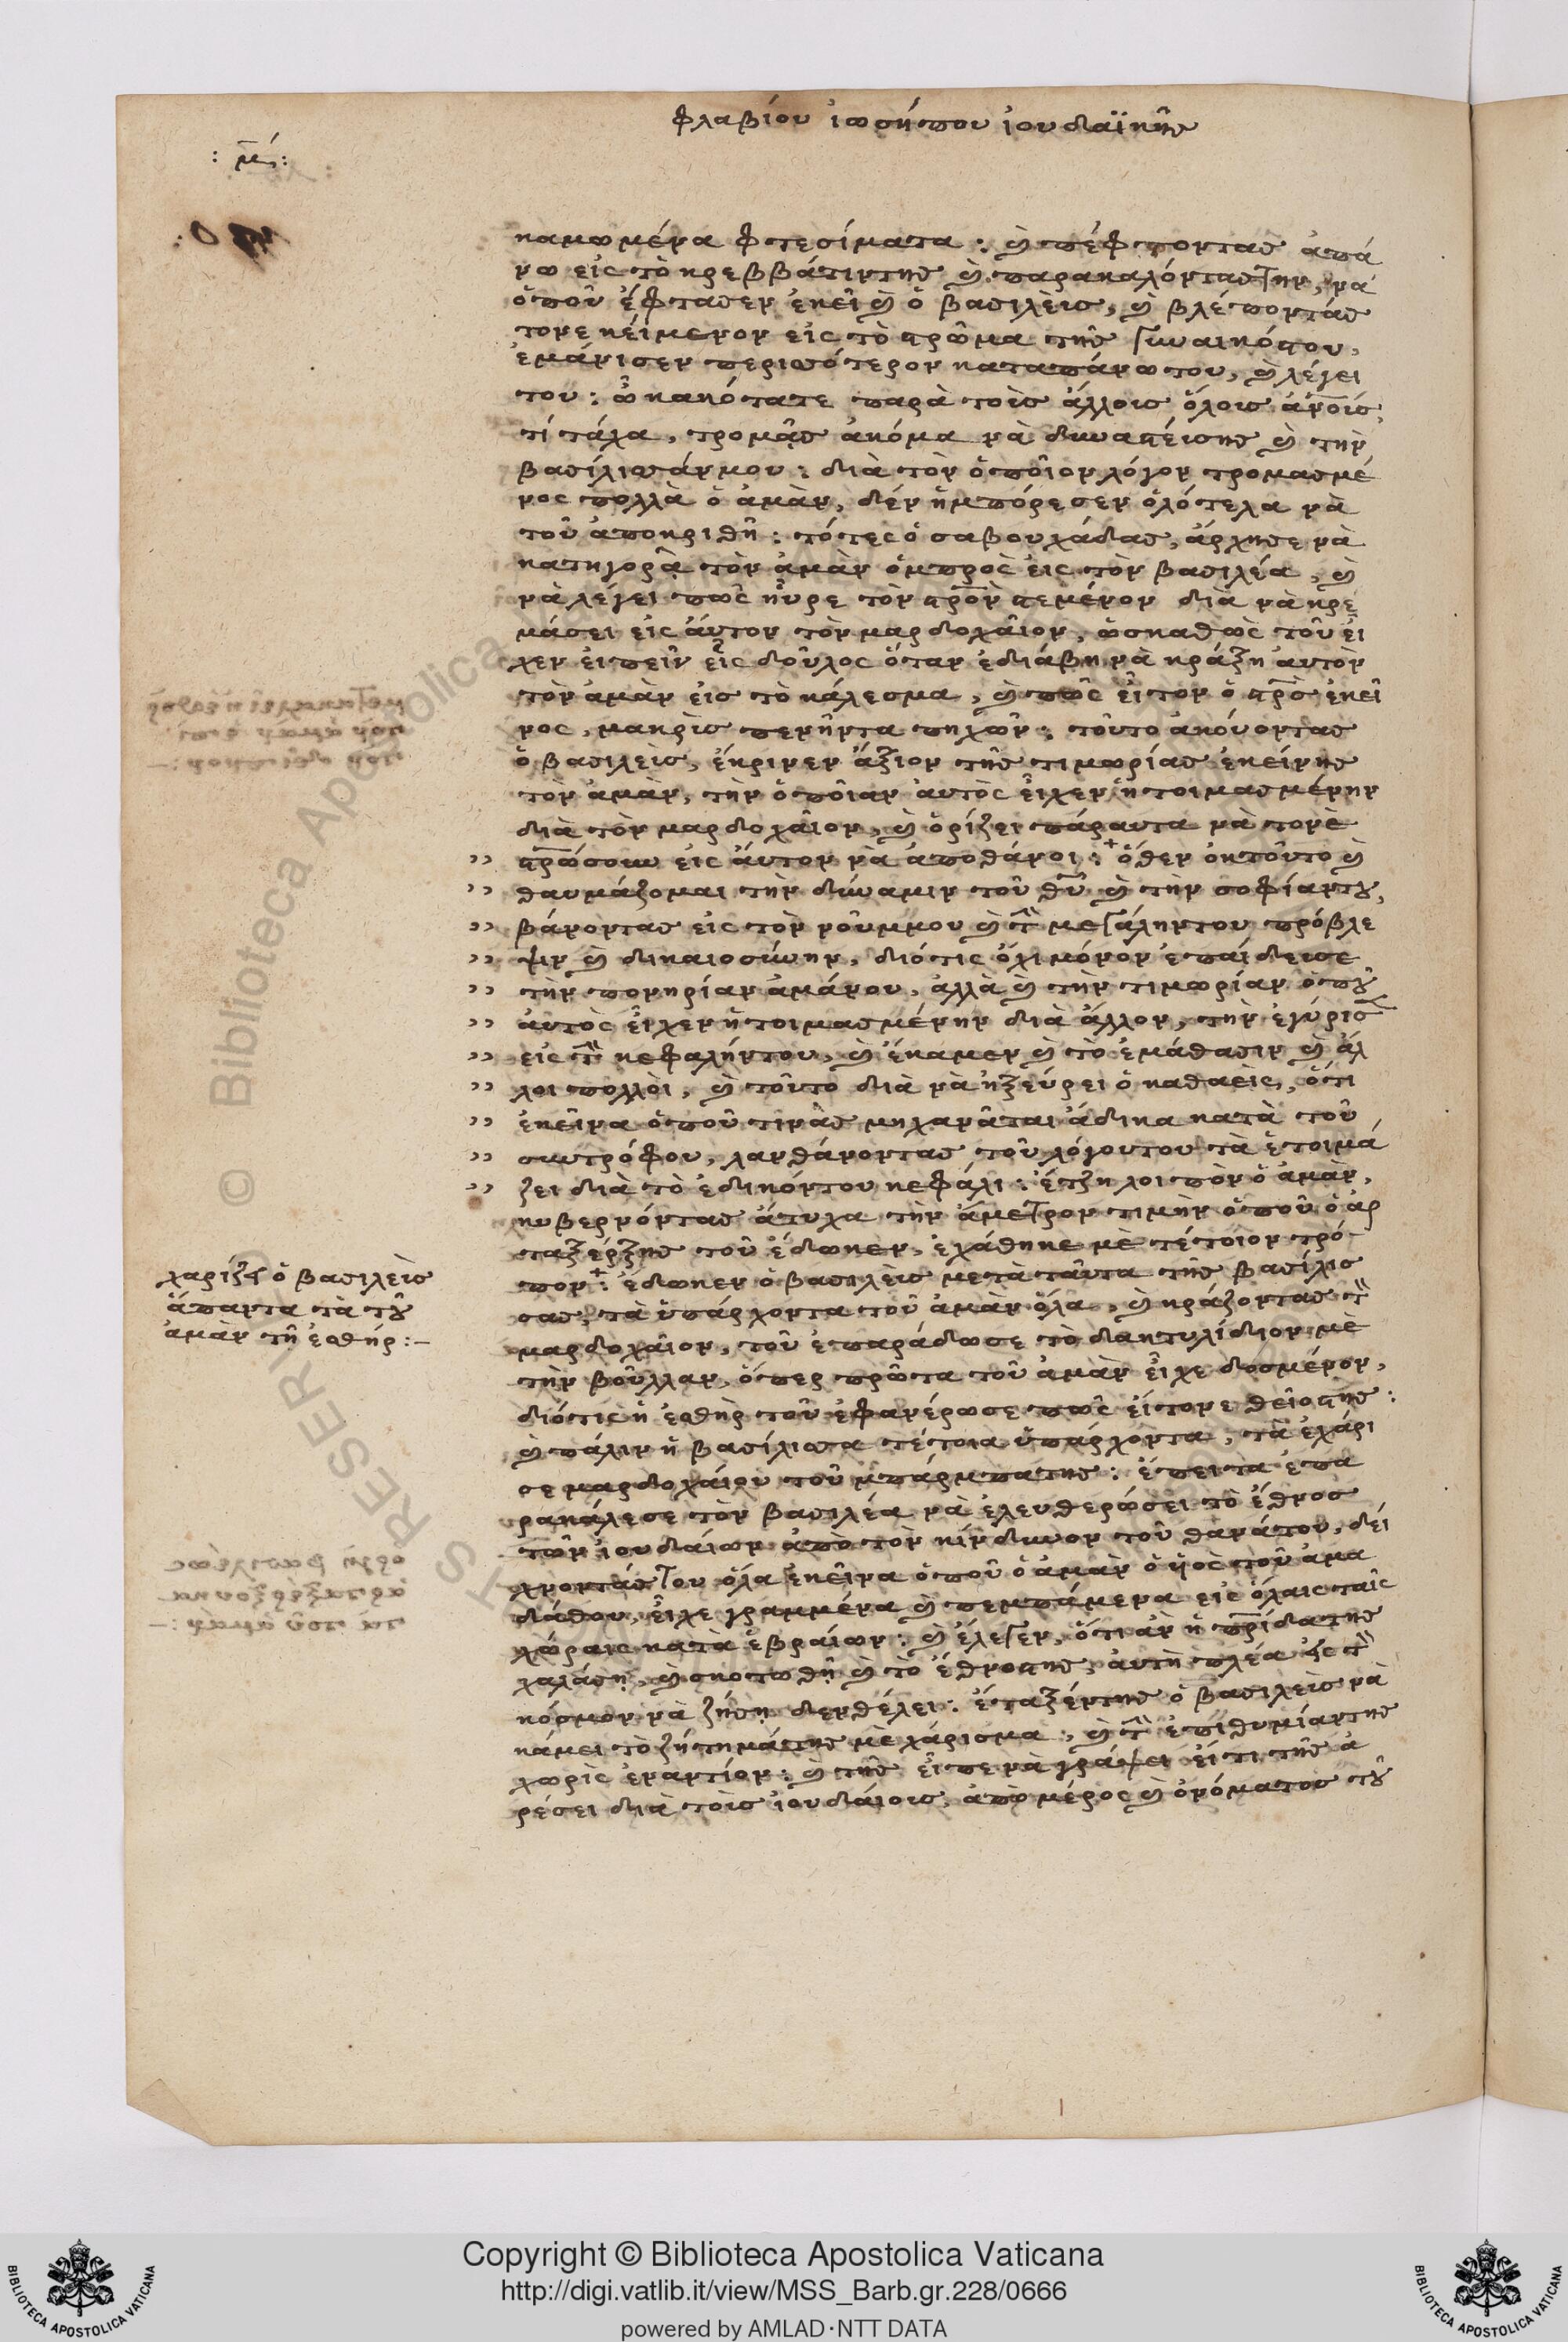 φλαβίου ἰωσήπου ἰουδαϊκῆς
: μς΄:
καμωμένα φτεσίματα : καὶ πέφτοντας ἀπά
νω εἰς τὸ κρεββάτιντης καὶ παρακαλόντας την, νά
ὁποῦ ἔφτασεν ἐκεῖ καὶ ὁ βασιλὲις, καὶ βλέποντάς
τονε κείμενον εἰς τὸ στρῶμα τῆς γυναικόςτου,
ἐμάνισεν περισσότερον καταπάνωτου, καὶ λέγει
του : ὦ κακότατε παρὰ τοὶς ἄλλοις ὅλοις ἀνοὶς,
τί τάχα, τρομᾷς ἀκόμα νὰ δυναστέισῃς καὶ τὴν
βασίλισσάνμου : διὰ τὸν ὁποῖον λόγον τρομασμέ
νος πολλὰ ὁ ἀμὰν, δὲν ἠμπόρεσεν ὁλότελα νὰ
τοῦ ἀποκριθῆ : τότες ὁ σαβουχάδας, ἄρχησε νὰ
κατηγορᾷ τὸν ἀμὰν ὀμπρὸς εἰς τὸν βασιλέα, καὶ
νὰ λέγει πῶς ηὗρε τὸν στρον στεμένον διὰ νὰ κρε
μάσει εἰς ἄυτον τὸν μαρδοχᾶιον, ὡσκαθὼς τοῦ εἶ
χεν εἰπεῖν εἷς δοῦλος ὅταν ἐδιάβη νὰ κράξῃ ἀυτὸν
τὸν ἀμὰν εἰς τὸ κάλεσμα, καὶ πῶς εἶτον ὁ στρὸς ἐκεῖ
νος, μακρὶς πενῆντα πηχῶν : τοῦτο ἀκούοντας
ὁ βασιλὲις, ἔκρινεν ἄξιον τῆς τιμωρίας ἐκείνης
τὸν ἀμὰν, τὴν ὁποῖαν ἀυτὸς εἶχεν ἡτοιμασμένην
διὰ τὸν μαρδοχᾶιον, καὶ ὁρίζει πάραυτα νὰ τονὲ
στρώσουν εἰς ἄυτον νὰ ἀποθάνοι : + ὅθεν ἐκτοῦτο καὶ
θαυμάζομαι τὴν δύναμιν τοῦ θῦ καὶ τὴν σοφίαντου,
βάνοντας εἰς τὸν νοῦμμου καὶ τὴν μεγάληντου πρόβλε
ψιν καὶ δικαιοσύνην, διότις ὄχι μόνον ἐπαίδεισε
τὴν πονηρίαν ἀμάνου, ἀλλὰ καὶ τὴν τιμωρίαν ὁποῦ
ἀυτὸς εἶχεν ἡτοιμασμένην διὰ ἄλλον, τὴν ἐγύρισεν
εἰς τὴν κεφαλήντου, καὶ ἔκαμεν καὶ τὸ ἐμάθασιν καὶ ἄλ
λοι πολλοὶ, καὶ τοῦτο διὰ νὰ ἠξεύρει ὁ καθαεὶς, ὅτι
ἐκεῖνα ὁποῦ τινὰς μηχανᾶται ἄδικα κατὰ τοῦ
συντρόφου, λανθάνοντας τοῦ λόγουτου τὰ ἑτοιμά
ζει διὰ τὸ ἐδικόντου κεφάλι : ἔτζη λοιπὸν ὁ ἀμὰν,
κυβερνόντας ἄτυχα τὴν ἄμετρον τιμὴν ὁποῦ ὁ ἀρ
ταξέρξης τοῦ ἔδωκεν, ἐχάθηκε μὲ τέτοιον τρό
πον + : ἔδωκεν ὁ βασιλὲις μετὰ ταῦτα τῆς βασίλισ
σας, τὰ ὑπάρχοντα τοῦ ἀμὰν ὅλα, καὶ κράζοντας τὸν
μαρδοχᾶιον, τοῦ ἐπαράδωσε τὸ δακτυλίδιον μὲ
τὴν βοῦλλαν, ὅπερ πρῶτα τοῦ ἀμὰν εἶχε δοσμένον,
διότις ἡ ἐσθὴρ τοῦ ἐφανέρωσε πῶς εἴτονε θεῖοςτης :
καὶ πάλιν ἡ βασίλισσα τέτοια ὑπάρχοντα, τὰ ἐχάρι
σε μαρδοχάιου τοῦ μπάρμπατης : ἔπειτα ἐπα
ρακάλεσε τὸν βασιλέα νὰ ἐλευθερώσει τὸ ἔθνος
τῶν ἰουδαίων ἀπὸ τὸν κίνδυνον τοῦ θανάτου, δεί
χνοντάς του ὅλα ἐκεῖνα ὁποῦ ὁ ἀμὰν ὁ ὑιὸς τοῦ ἀμα
δάθου, εἶχε γραμμένα καὶ πεμπάμενα εἰς ὅλαις ταῖς
χώραις κατὰ ἑβραίων : καὶ ἔλεγεν, ὅτι ἂν ἡ πρίδατης
χαλάσῃ, καὶ σκοτωθῇ καὶ τὸ ἔθνοςτης, ἀυτὴ πλέα εἰς τὸν
κόσμον νὰ ζήσῃ δενθέλει : ἔταξέντης ὁ βασιλὲις νὰ
κάμει τὸ ζήτημάτης μὲ χάρισμα :, καὶ τὴν ἐπιθυμίαντης
χωρὶς ἐναντίον : καὶ τῆς εἶπε νὰ γράψει εἴτι τῆς ἀ
ρέσει διὰ τοὶς ἰουδάιοις, ἀπὸ μέρος καὶ ὀνόματος τοῦ
χαρίζει ὁ βασιλεὶς
ἅπαντα τὰ τοῦ
ἀμὰν τῇ ἐσθήρ : –
© Biblioteca Apostolica
Copyright © Biblioteca Apostolica Vaticana
http://digi.vatlib.it/view/MSS_Barb.gr.228/0666
powered by AMLAD·NTT DATA
BIBLIOTECA APOSTOLICA VATICANA
BIBLIOTECA APOSTOLICA VATICANA